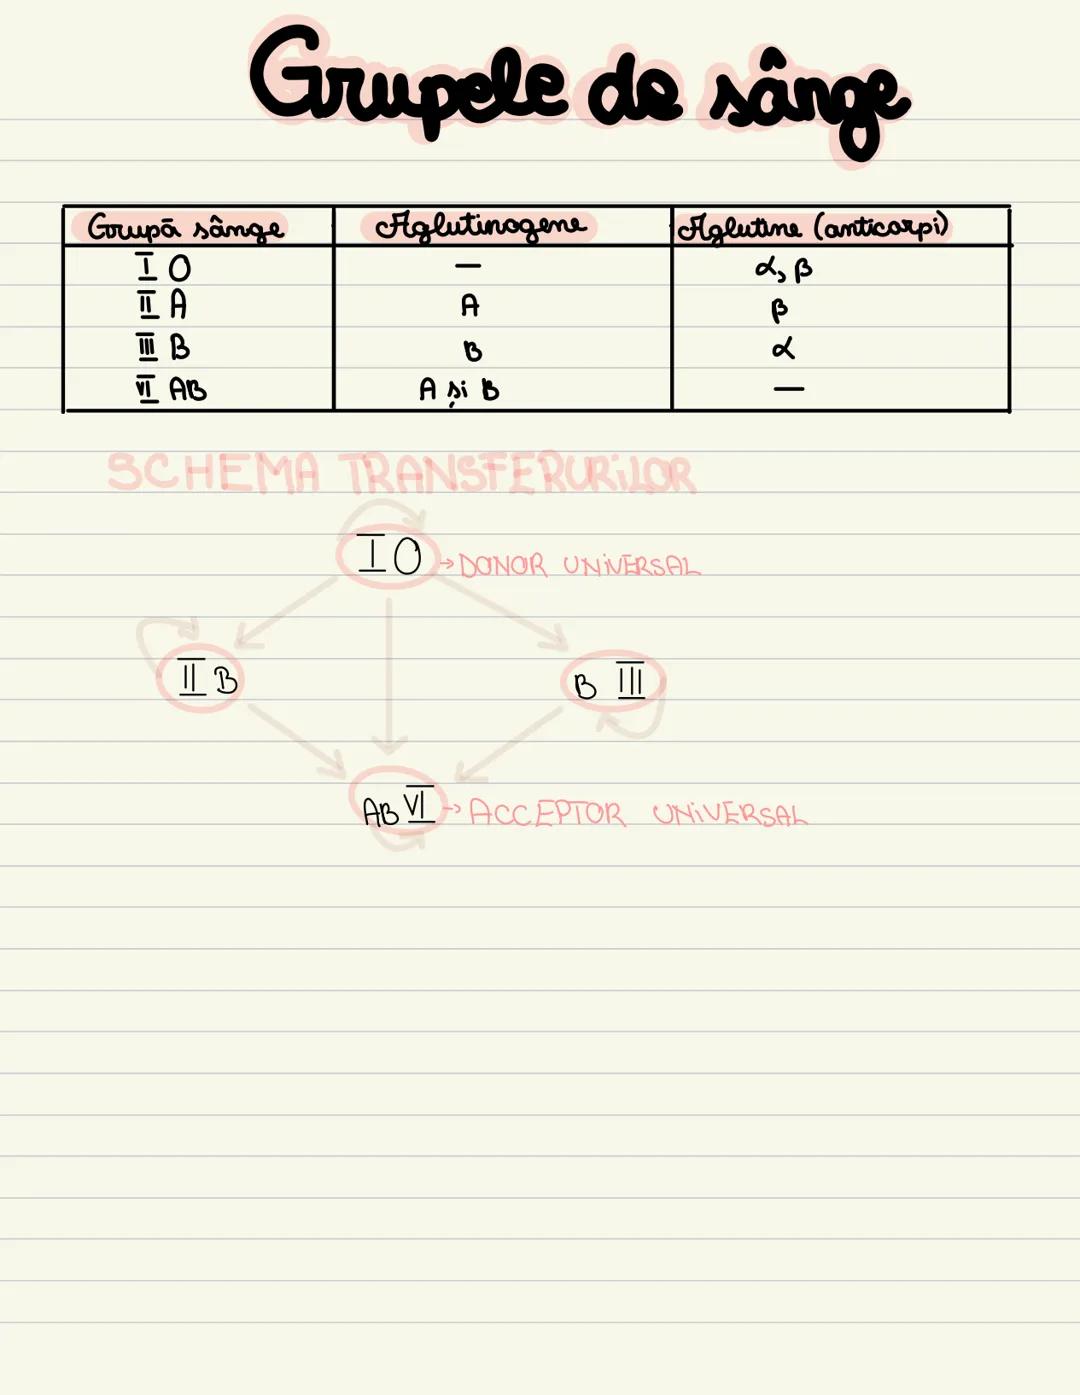 Grupele de sânge
Grupă sânge Aglutinogene Aglutine (anticorpi)
I O — α, β
II A A β
III B B α
VI AB A și B —
SCHEMA TRANSFERURiLOR
I O → DONOR UNiVERSAL
II B B III
AB VI → ACCEPTOR UNiVERSAL